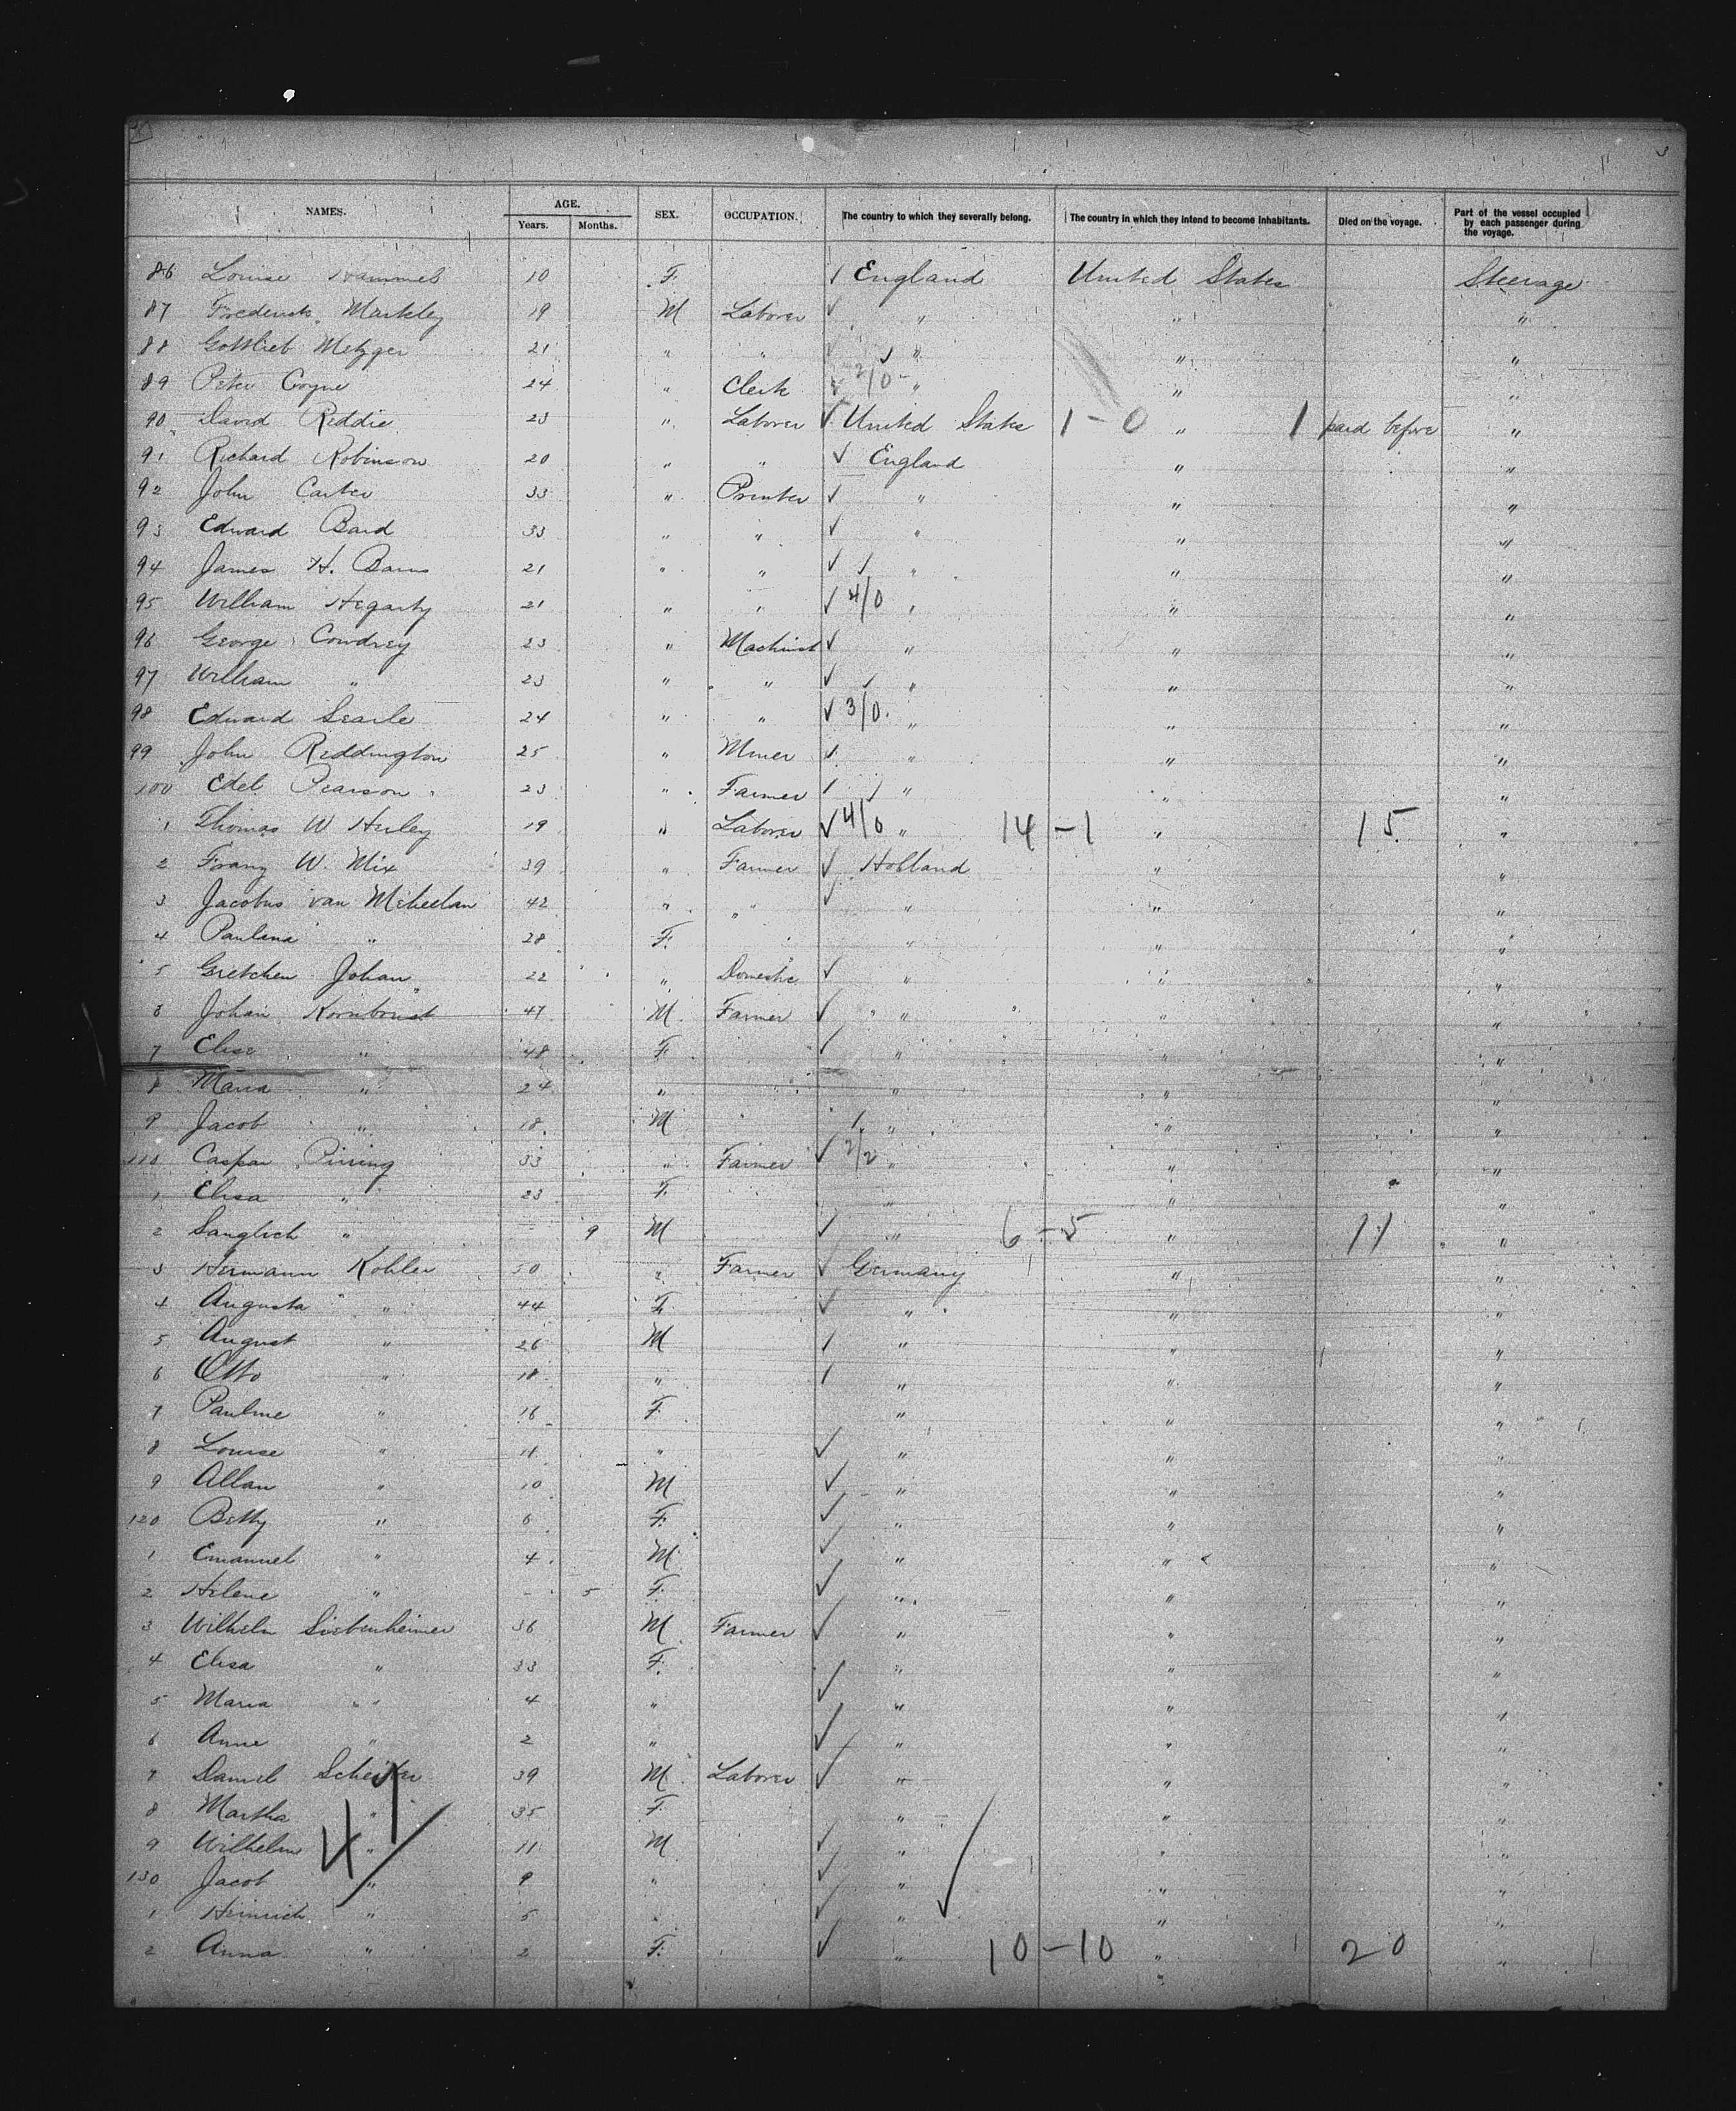 NAMES. AGE. SEX. OCCUPATION. The country to which they severally belong. The country in which they intend to become inhabitants. Died on the voyage. Part of the vessel occupied by each passenger during the voyage.
Years. Months.
86 Louise 10 F. England United States Steerage
87 Frederick Markley 19 M Laborer " " "
88 Gottlieb Metzger 21 " " " " "
89 Peter Coyne 24 " Clerk 2/0 " " "
90 David Reddie 23 " Laborer United States 1-0 " 1 paid before "
91 Richard Robinson 20 " " England " "
92 John Carter 33 " Printer " " "
93 Edward Bard 33 " " " " "
94 James H. 21 " " " " "
95 William Hegarty 21 " " 4/0 " " "
96 George Cowdrey 23 " Machinist " " "
97 William " 23 " " " " "
98 Edward Searle 24 " " 3/0 " " "
99 John Reddington 25 " Miner " " "
100 Edel Pearson 23 " Farmer " " "
1 Thomas W Hurley 19 " Laborer 4/0 " 14-1 " 15 "
2 Franz W. Mix 39 " Farmer Holland " "
3 Jacobus van 42 " " " " "
4 Paulina " 28 F. " " "
5 Gretchen Johan 22 " Domestic " " "
6 Johan 47 M. Farmer " " "
7 Elise " 48 F " " "
8 Maria " 24 " " " "
9 Jacob " 18 M " " "
110 Caspar Pirring 33 " Farmer 2/2 " " "
1 Elisa " 23 F. " " "
2 " 9 M " 6-5 " 11 "
3 Hermann Kohler 50 " Farmer Germany " "
4 Augusta " 44 F. " " "
5 August " 26 M " " "
6 Otto " 18 " " " "
7 Pauline " 16 F. " " "
8 Louise " 11 " " " "
9 Allan " 10 M " " "
120 Betty " 6 F. " " "
1 Emanuel " 4 M " " "
2 Helene " - 5 F. " " "
3 Wilhelm Siebenheimer 36 M Farmer " " "
4 Elisa " 33 F. " " "
5 Maria " 4 " " " "
6 Anne " 2 " " " "
7 Daniel 39 M Laborer " " "
8 Martha " 35 F. " " "
9 Wilhelm " 11 M " " "
130 Jacob " 9 " " " "
1 Heinrich " 5 " " " "
2 Anna " 2 F. " 10-10 " 20 "